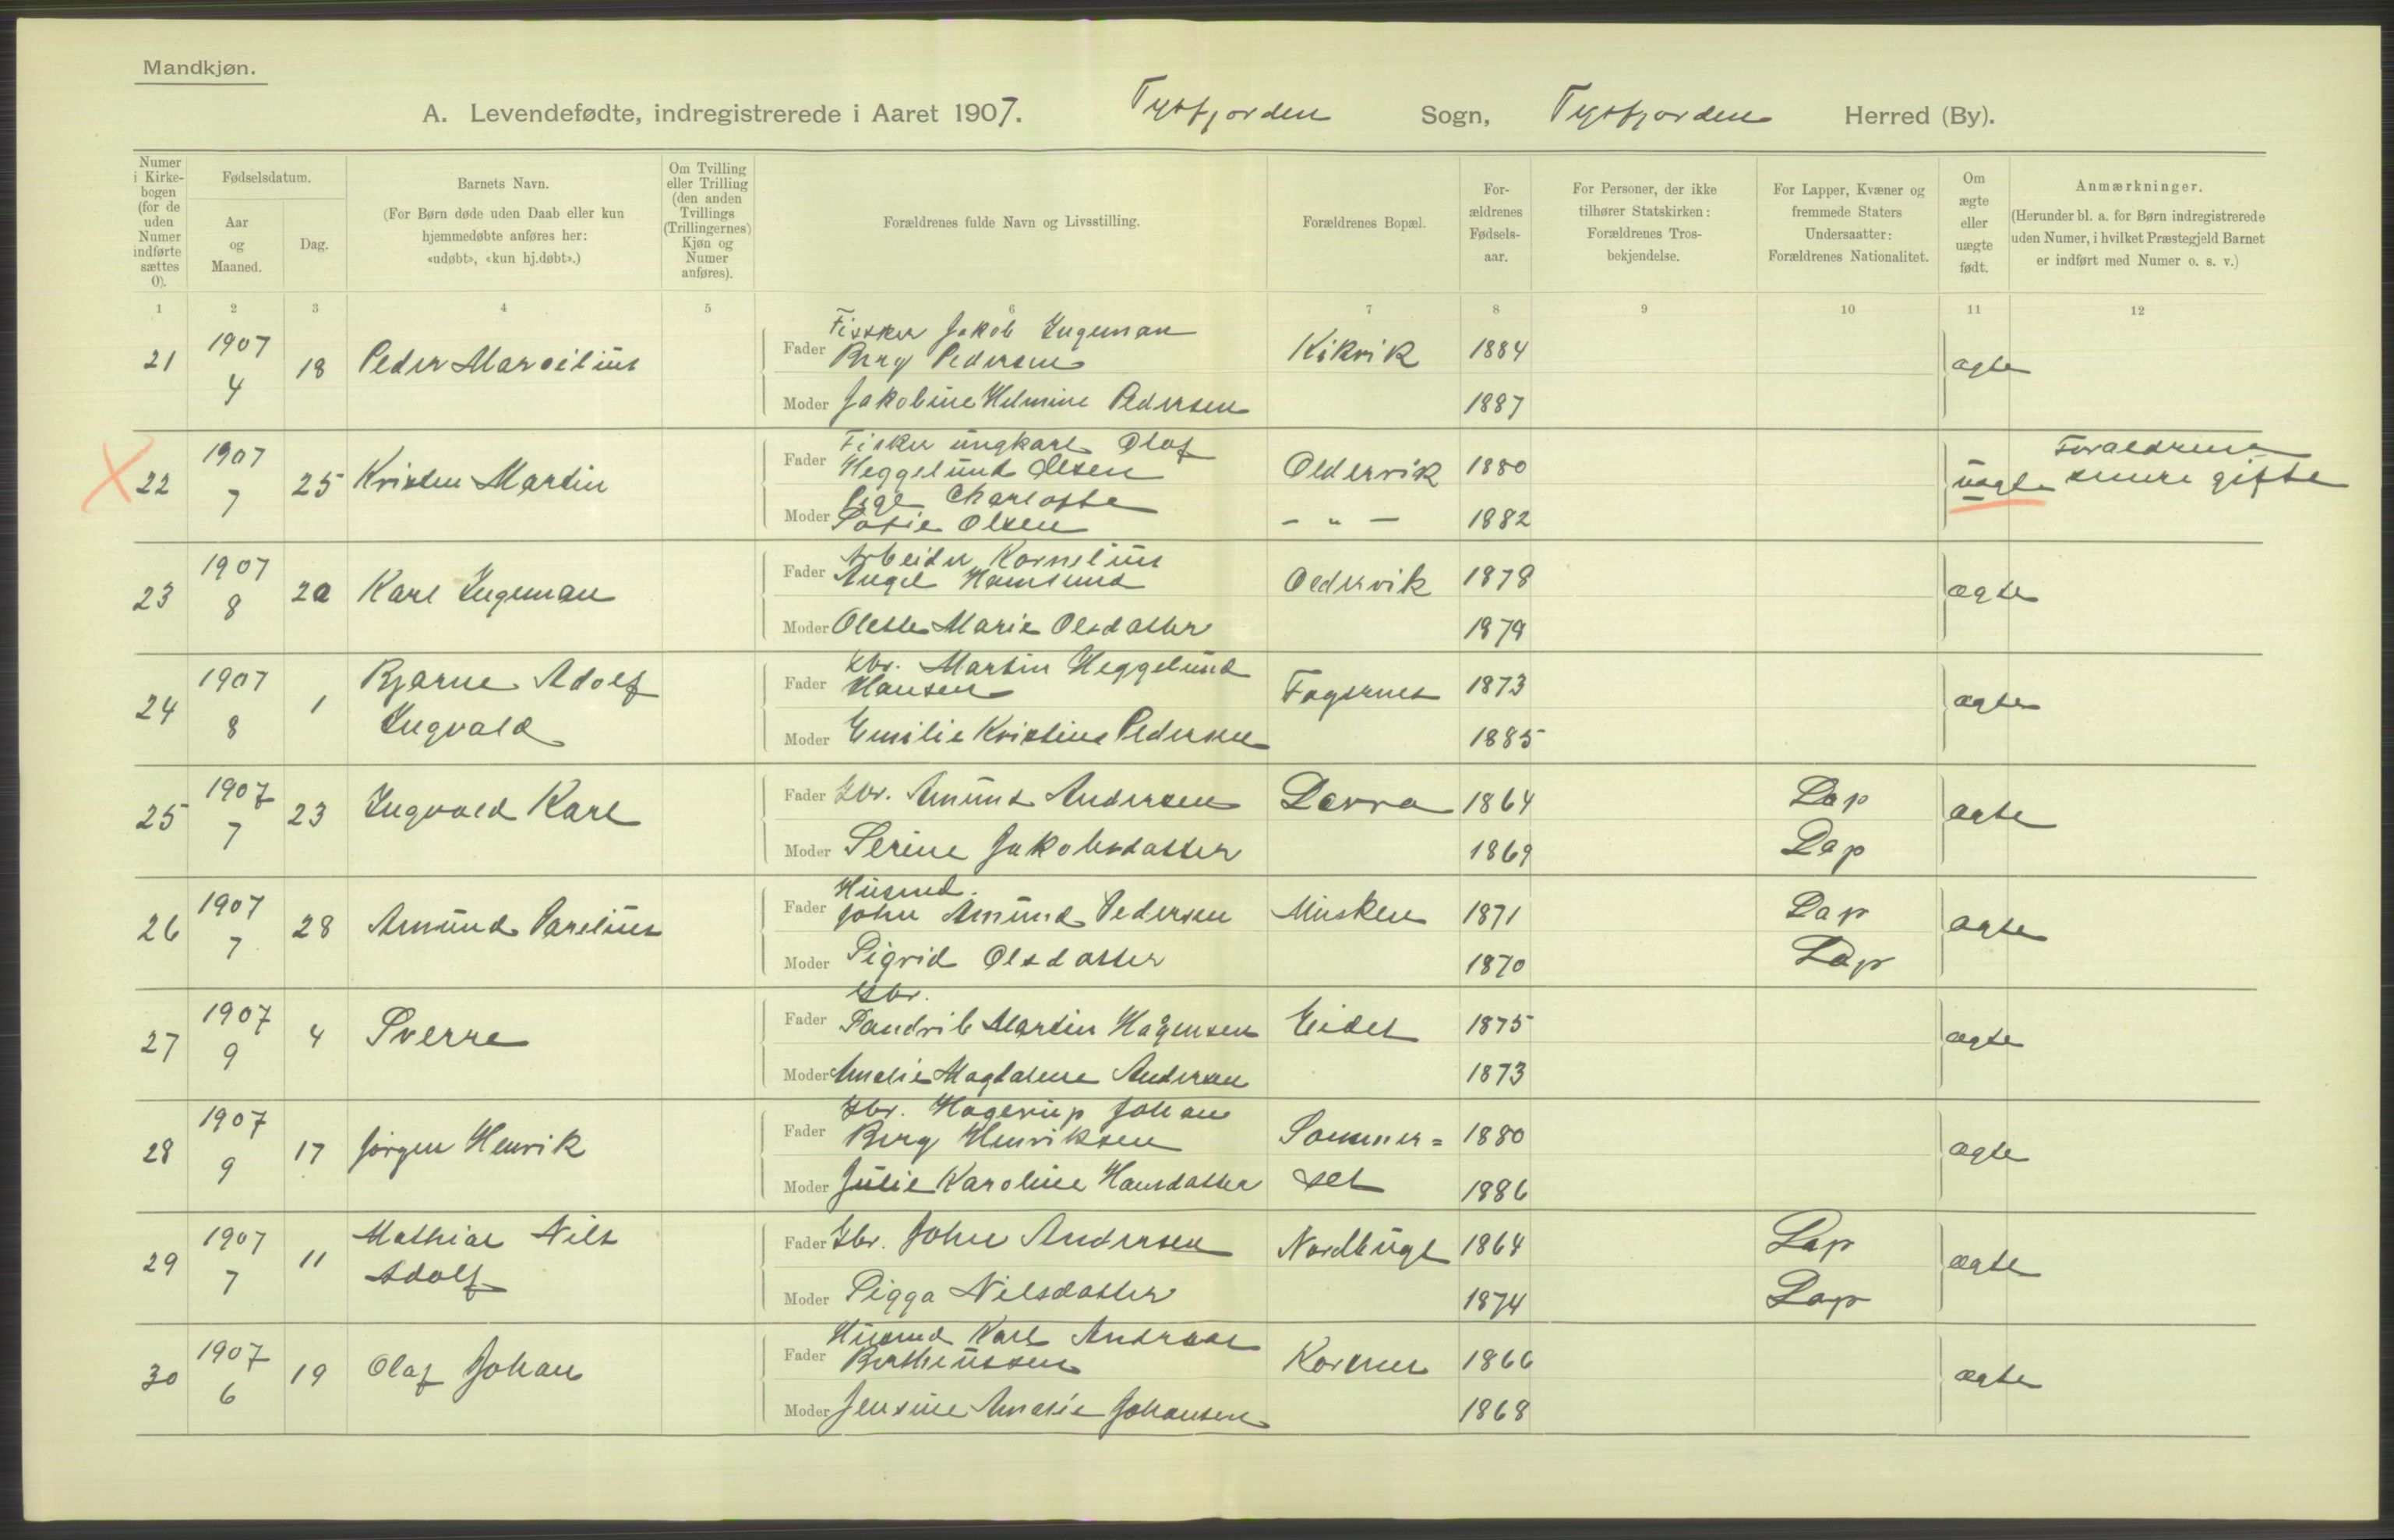 Mandkjøn.
A. Levendefødte, indregistrerede i Aaret 1907. Tysfjorden Sogn, Tysfjorden Herred (By).
Numer i Kirkebogen (for de uden Numer indførte sættes 0). Fødselsdatum. Aar og Maaned. Dag. Barnets Navn. (For Børn døde uden Daab eller kun hjemmedøbte anføres her: «udøbt», «kun hj.døbt».) Om Tvilling eller Trilling (den anden Tvillings (Trillingernes) Kjøn og Numer anføres). Forældrenes fulde Navn og Livsstilling. Forældrenes Bopæl. Forældrenes Fødselsaar. For Personer, der ikke tilhører Statskirken: Forældrenes Trosbekjendelse. For Lapper, Kvæner og fremmede Staters Undersaatter: Forældrenes Nationalitet. Om ægte eller uægte født. Anmærkninger. (Herunder bl. a. for Børn indregistrerede uden Numer, i hvilket Præstegjeld Barnet er indført med Numer o. s. v.)
1 2 3 4 5 6 7 8 9 10 11 12
21 1907 4 18 Peder Marselius
Fader Fisker Jakob Ingeman
Berg Pedersen Kikvik 1884 ægte
Moder Jakobine Helmine Pedersen 1887
X 22 1907 7 25 Kristen Martin
Fader Fisker ungkarl Olaf
Heggelund Olsen Oldervik 1880 uægte Forældrene senere gifte
Moder Pige Charlotte
Sofie Olsen - " - 1882
23 1907 8 20 Karl Ingeman
Fader Arbeider Kornelius
Angel Hamsund Oldervik 1878 ægte
Moder Olette Marie Olsdatter 1879
24 1907 8 1 Bjarne Adolf
Ingvald
Fader Gbr. Martin Heggelund
Hansen Fagernes 1873 ægte
Moder Emilie Kristine Pedersen 1885
25 1907 7 23 Ingvald Karl
Fader Gbr. Amund Andersen 1864 Lap ægte
Moder Serine Jakobsdatter 1869 Lap
26 1907 7 28 Amund Parelius
Fader Husmd.
John Amund Pedersen Musken 1871 Lap ægte
Moder Sigrid Olsdatter 1870 Lap
27 1907 9 4 Sverre
Gbr.
Fader Sandvik Martin Hagensen Eidet 1875 ægte
Moder Amalie Magdalene Andersen 1873
28 1907 9 17 Jørgen Henrik
Fader Gbr. Hagerup Johan
Berg Henriksen Sommer= 1880 ægte
Moder Julie Karoline Hansdatter set 1886
29 1907 7 11 Mathias Nils
Adolf
Fader Gbr. John Andersen Nordbugt 1864 Lap ægte
Moder Sigga Nilsdatter 1874 Lap
30 1907 6 19 Olaf Johan
Fader Husmd Karl Andreas
Bertheussen Korsnes 1866 ægte
Moder Jensine Amalie Johansen 1868